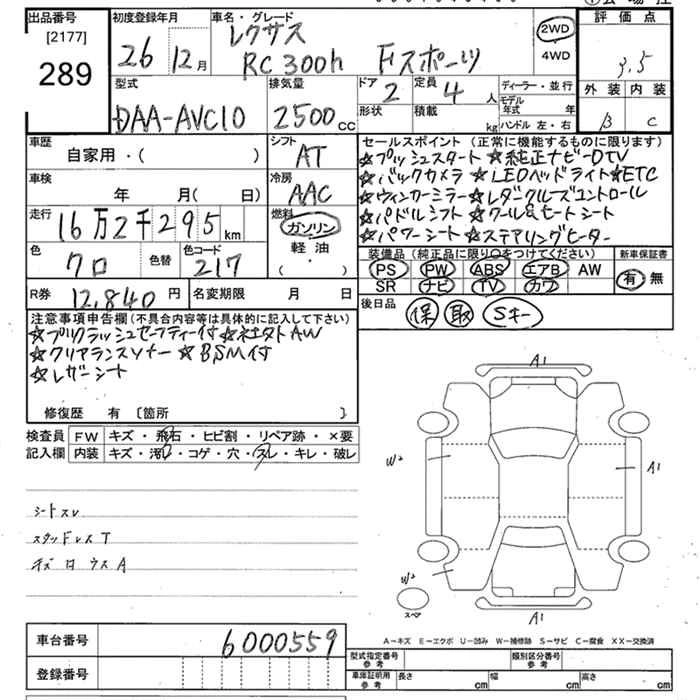 出品番号
[2177]
289
初度登録年月
26 12月
車名・グレード
レクサス
RC300h Fスポーツ
2WD
4WD
評価点
3.5
外装 内装
B C
型式
DAA-AVC10
排気量
2500cc
ドア
2
定員
4人
形状
積載
kg
ディーラー・並行
モデル年式 年
ハンドル 左・右
車歴
自家用・( )
シフト
AT
車検
年 月( 日)
冷房
AAC
走行
16万2千295km
燃料
ガソリン
軽油
( ・ )
色
クロ
色替
色コード
217
R券
12,840円
名変期限 月 日
セールスポイント(正常に機能するものに限ります)
☆プッシュスタート ☆純正ナビ-DTV
☆バックカメラ ☆LEDヘッドライト☆ETC
☆ウィンカーミラー☆レダクルーズコントロール
☆パドルシフト ☆クール&ヒートシート
☆パワーシート ☆ステアリングヒーター
装備品(純正品に限り○をつけてください)
PS PW ABS エアB AW
SR ナビ TV カワ
新車保証書
有 無
後日品
保 取 Sキー
注意事項申告欄(不具合内容等は具体的に記入して下さい)
☆プリクラッシュセーフティー付 ☆社外AW
☆クリアランスソナー ☆BSM付
☆レザーシート
修復歴 有 〔箇所 〕
検査員記入欄
FW キズ・飛石・ヒビ割・リペア跡・×要
内装 キズ・汚・コゲ・穴・スレ・キレ・破レ
シートスレ
スタッドレスT
キズ
A1
W2
A1
W2
スペア
A1
A-キズ E-エクボ U-凹み W-補修跡 S-サビ C-腐食 XX-交換済
車台番号
6000559
登録番号
型式指定番号
参考
類別区分番号
参考
車庫証明用
参考
長さ cm
幅 cm
高さ cm